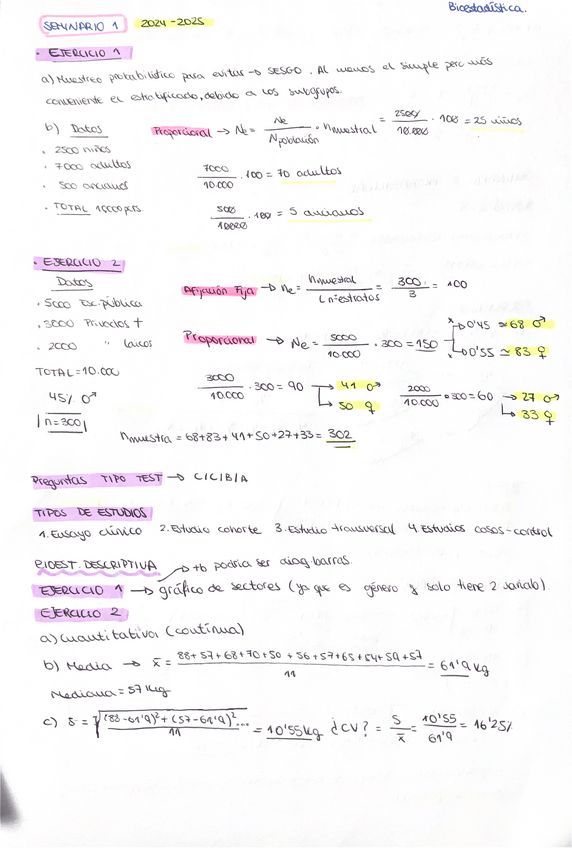 Bioestadística.
SEMINARIO 1 2024-2025
· EJERCICIO 1
a) Muestreo probabilístico para evitar → SESGO. Al menos el simple pero más
conveniente el estratificado, debido a los subgrupos.
b) Datos
· 2500 niños
· 7000 adultos
· 500 ancianos
· TOTAL 10000 pers
Proporcional → Ne = Ne / Npoblación · nmuestral = 2500 / 10.000 · 100 = 25 niños
7000 / 10.000 · 100 = 70 adultos
500 / 10000 · 100 = 5 ancianos
· EJERCICIO 2
Datos
· 5000 Esc. pública
· 3000 Privados +
· 2000 " laicos
TOTAL = 10.000
45% ♂
n=300
Afijación Fija → Ne = nmuestral / L nºestratos = 300 / 3 = 100
Proporcional → Ne = 5000 / 10.000 · 300 = 150 → 0'45 ≃ 68 ♂
→ 0'55 ≃ 83 ♀
3000 / 10.000 · 300 = 90 → 41 ♂
→ 50 ♀
2000 / 10.000 · 300 = 60 → 27 ♂
→ 33 ♀
nmuestra = 68+83+41+50+27+33 = 302
Preguntas TIPO TEST → C/C/B/A
TIPOS DE ESTUDIOS
1. Ensayo clínico 2. Estudio cohorte 3. Estudio transversal 4. Estudios casos-control
BIOEST. DESCRIPTIVA → tb podría ser diag. barras.
EJERCICIO 1 → gráfico de sectores (ya que es género y solo tiene 2 variab).
EJERCICIO 2
a) Cuantitativa (continua)
b) Media → x̄ = 88+57+68+70+50+56+57+65+54+59+57 / 11 = 61'9 kg
Mediana = 57 kg
c) S = √ (88-61'9)² + (57-61'9)² ... / 11 = 10'55 kg ¿CV? = S / x̄ = 10'55 / 61'9 = 16'25%